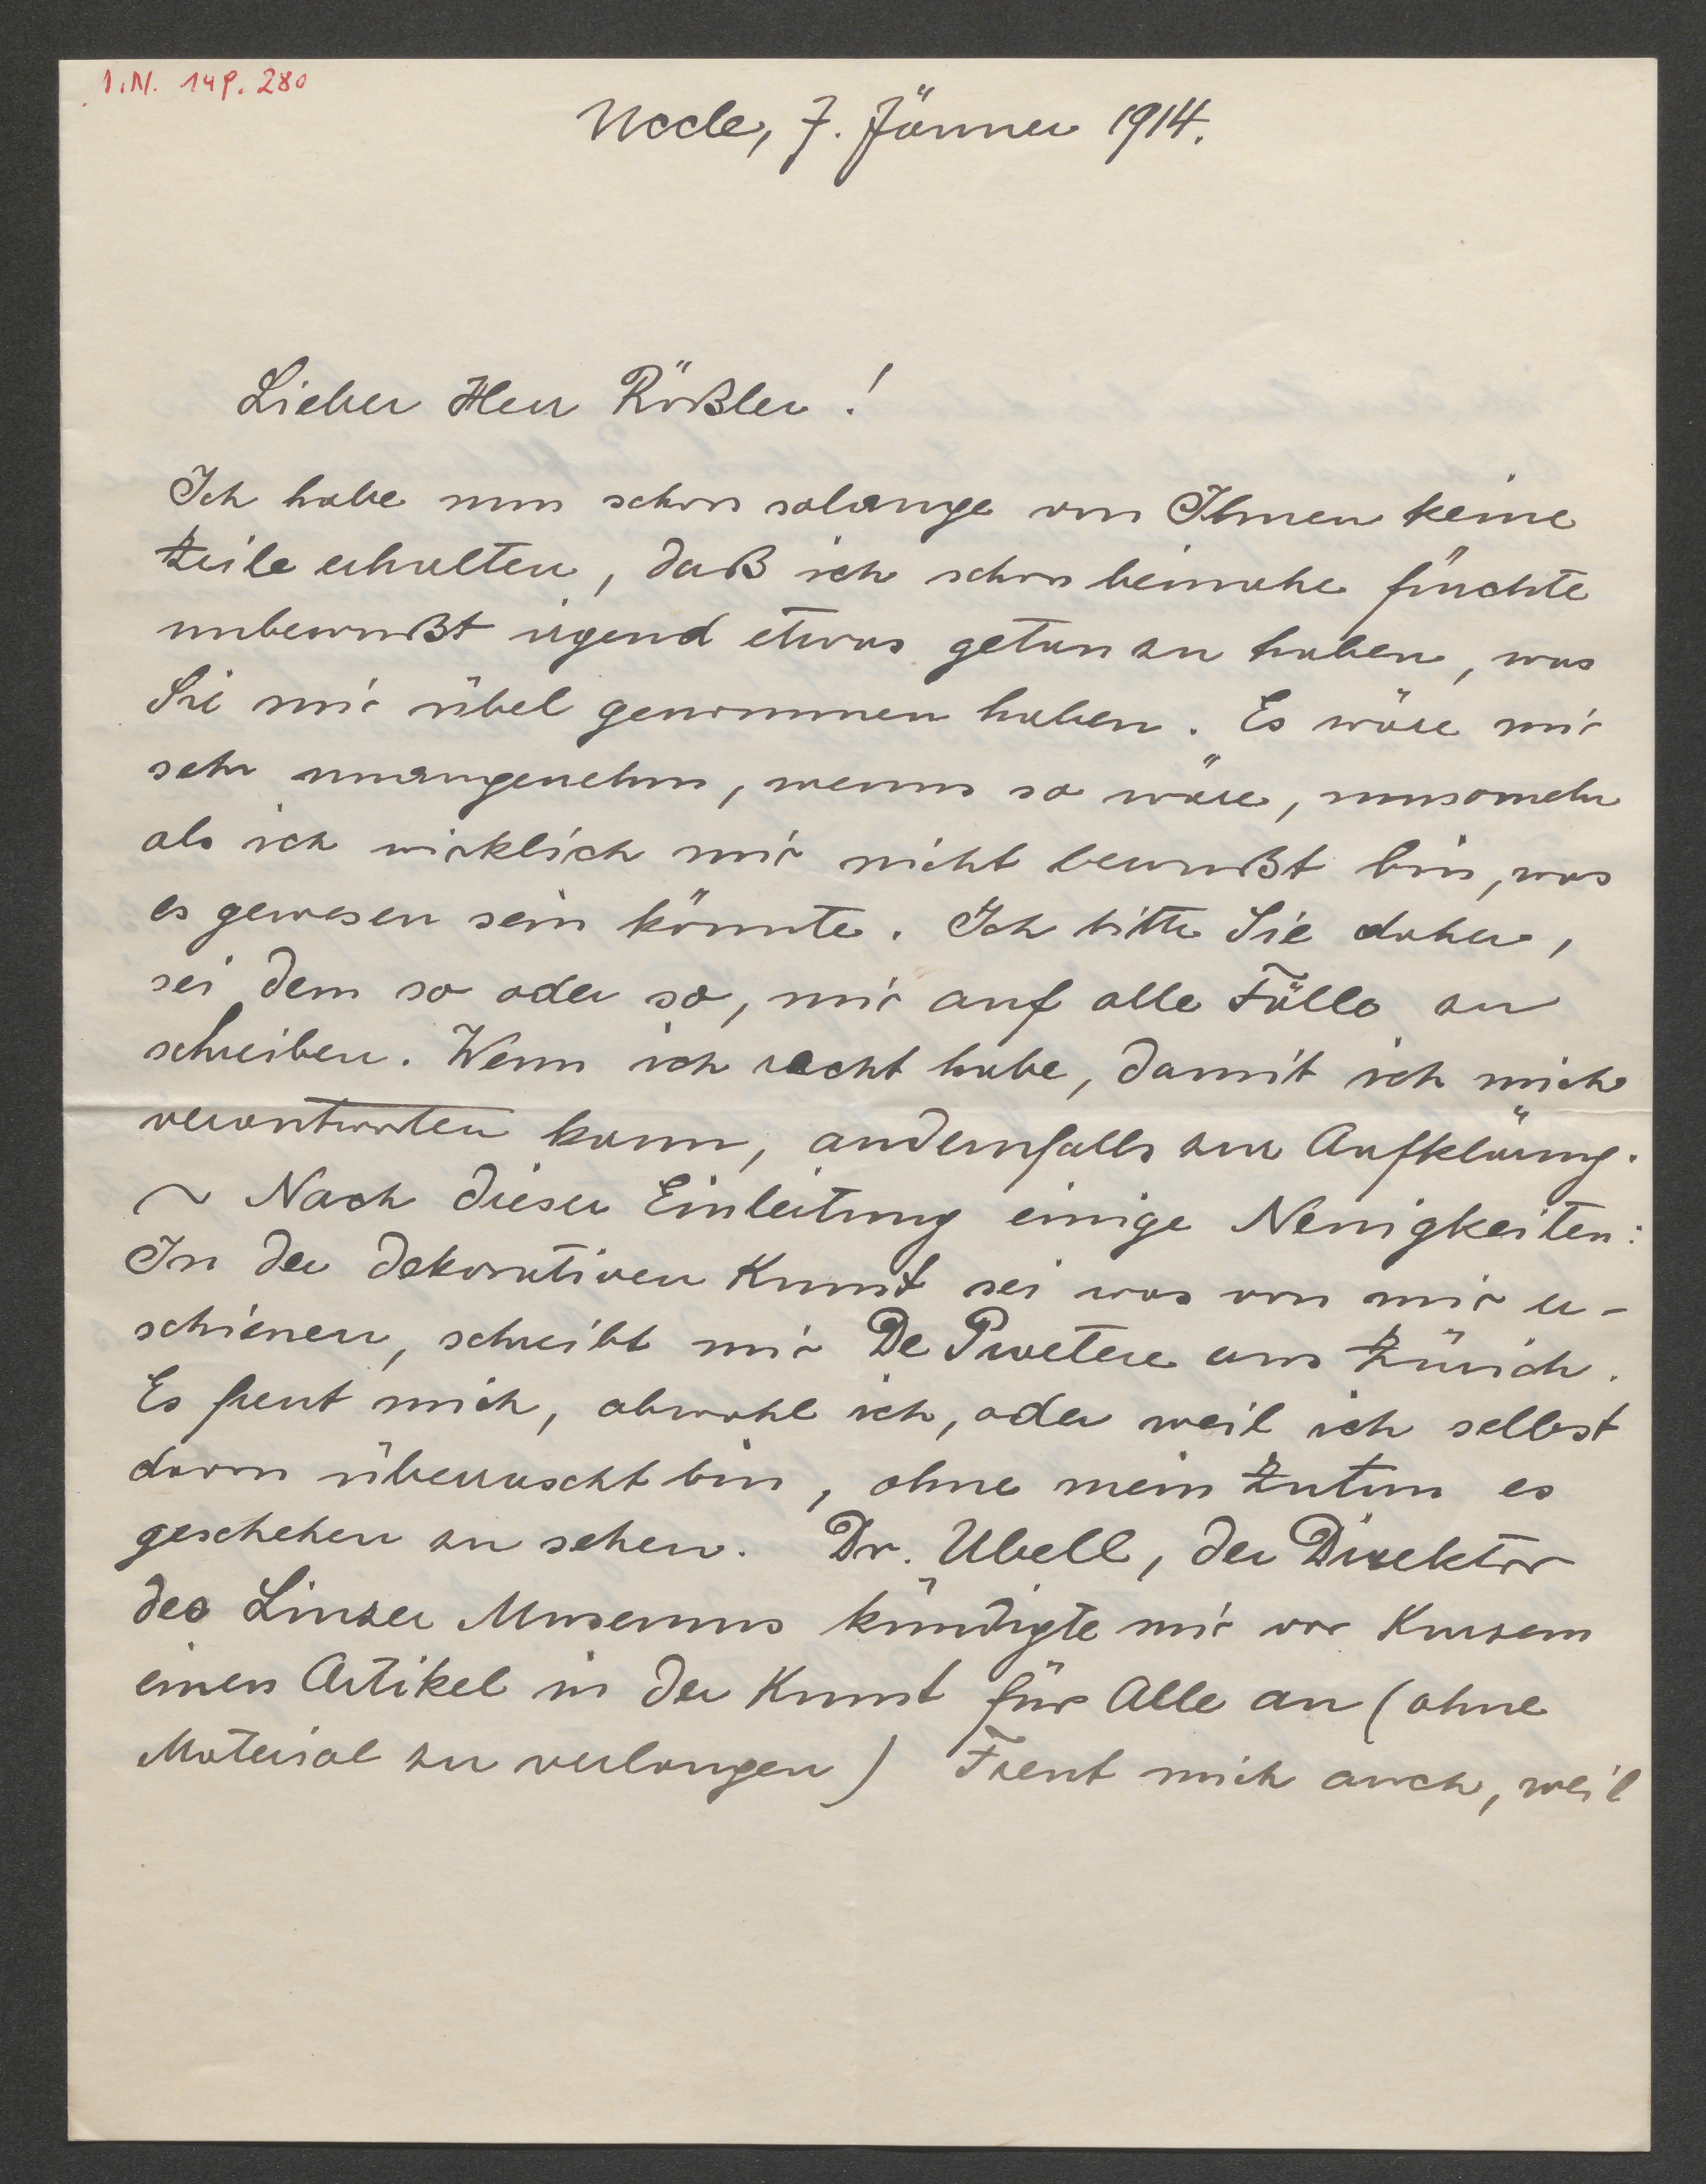 I.N. 149.280
Uccle, 7. Jänner 1914.
Lieber Herr Rößler!
Ich habe nun schon solange von Ihnen keine
Zeile erhalten, daß ich schon beinahe fürchte
unbewußt irgend etwas getan zu haben, was
Sie mir übel genommen haben. Es wäre mir
sehr unangenehm, wenns so wäre, umsomehr
als ich wirklich mir nicht bewußt bin, was
es gewesen sein könnte. Ich bitte Sie daher,
sei dem so oder so, mir auf alle Fälle zu
schreiben. Wenn ich recht habe, damit ich mich
verantworten kann, andernfalls zur Aufklärung.
~ Nach dieser Einleitung einige Neuigkeiten:
In der dekorativen Kunst sei was von mir er-
schienen, schreibt mir De Praetere aus Zürich.
Es freut mich, obwohl ich, oder weil ich selbst
davon überrascht bin, ohne mein Zutun es
geschehen zu sehen. Dr. Ubell, der Direktor
des Linzer Museums kündigte mir vor Kurzem
einen Artikel in der Kunst für Alle an (ohne
Material zu verlangen) Freut mich auch, weil